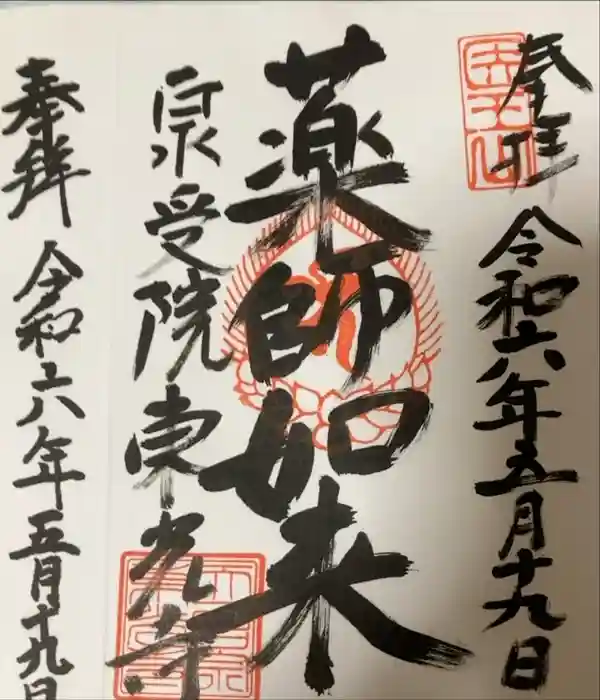 奉拝
令和六年五月十九日
薬師如来
泉受院東光寺
奉拝 令和六年五月十九日